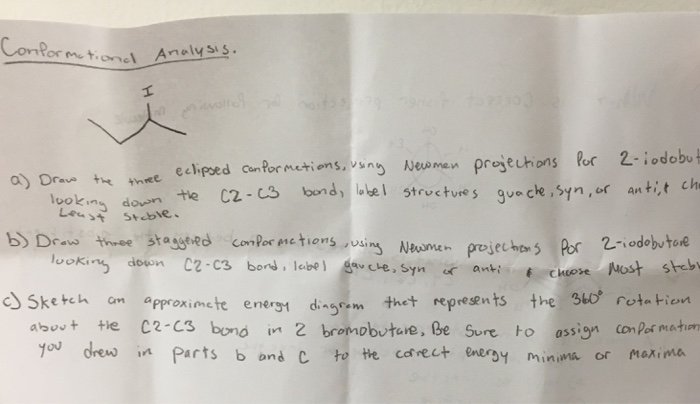 Conformational Analysis.
I
a) Draw the three eclipsed conformations, using Newman projections for 2-iodobut
looking down the C2-C3 bond, label structures guache, syn, or anti, & ch
Least stable.
b) Draw three staggered conformations, using Newman projections for 2-iodobutane
looking down C2-C3 bond, label gauche, syn or anti & choose Most stab
c) Sketch an approximate energy diagram that represents the 360° rotation
about the C2-C3 bond in 2 bromobutane, Be sure to assign conformation
you drew in parts b and c to the correct energy minima or maxima